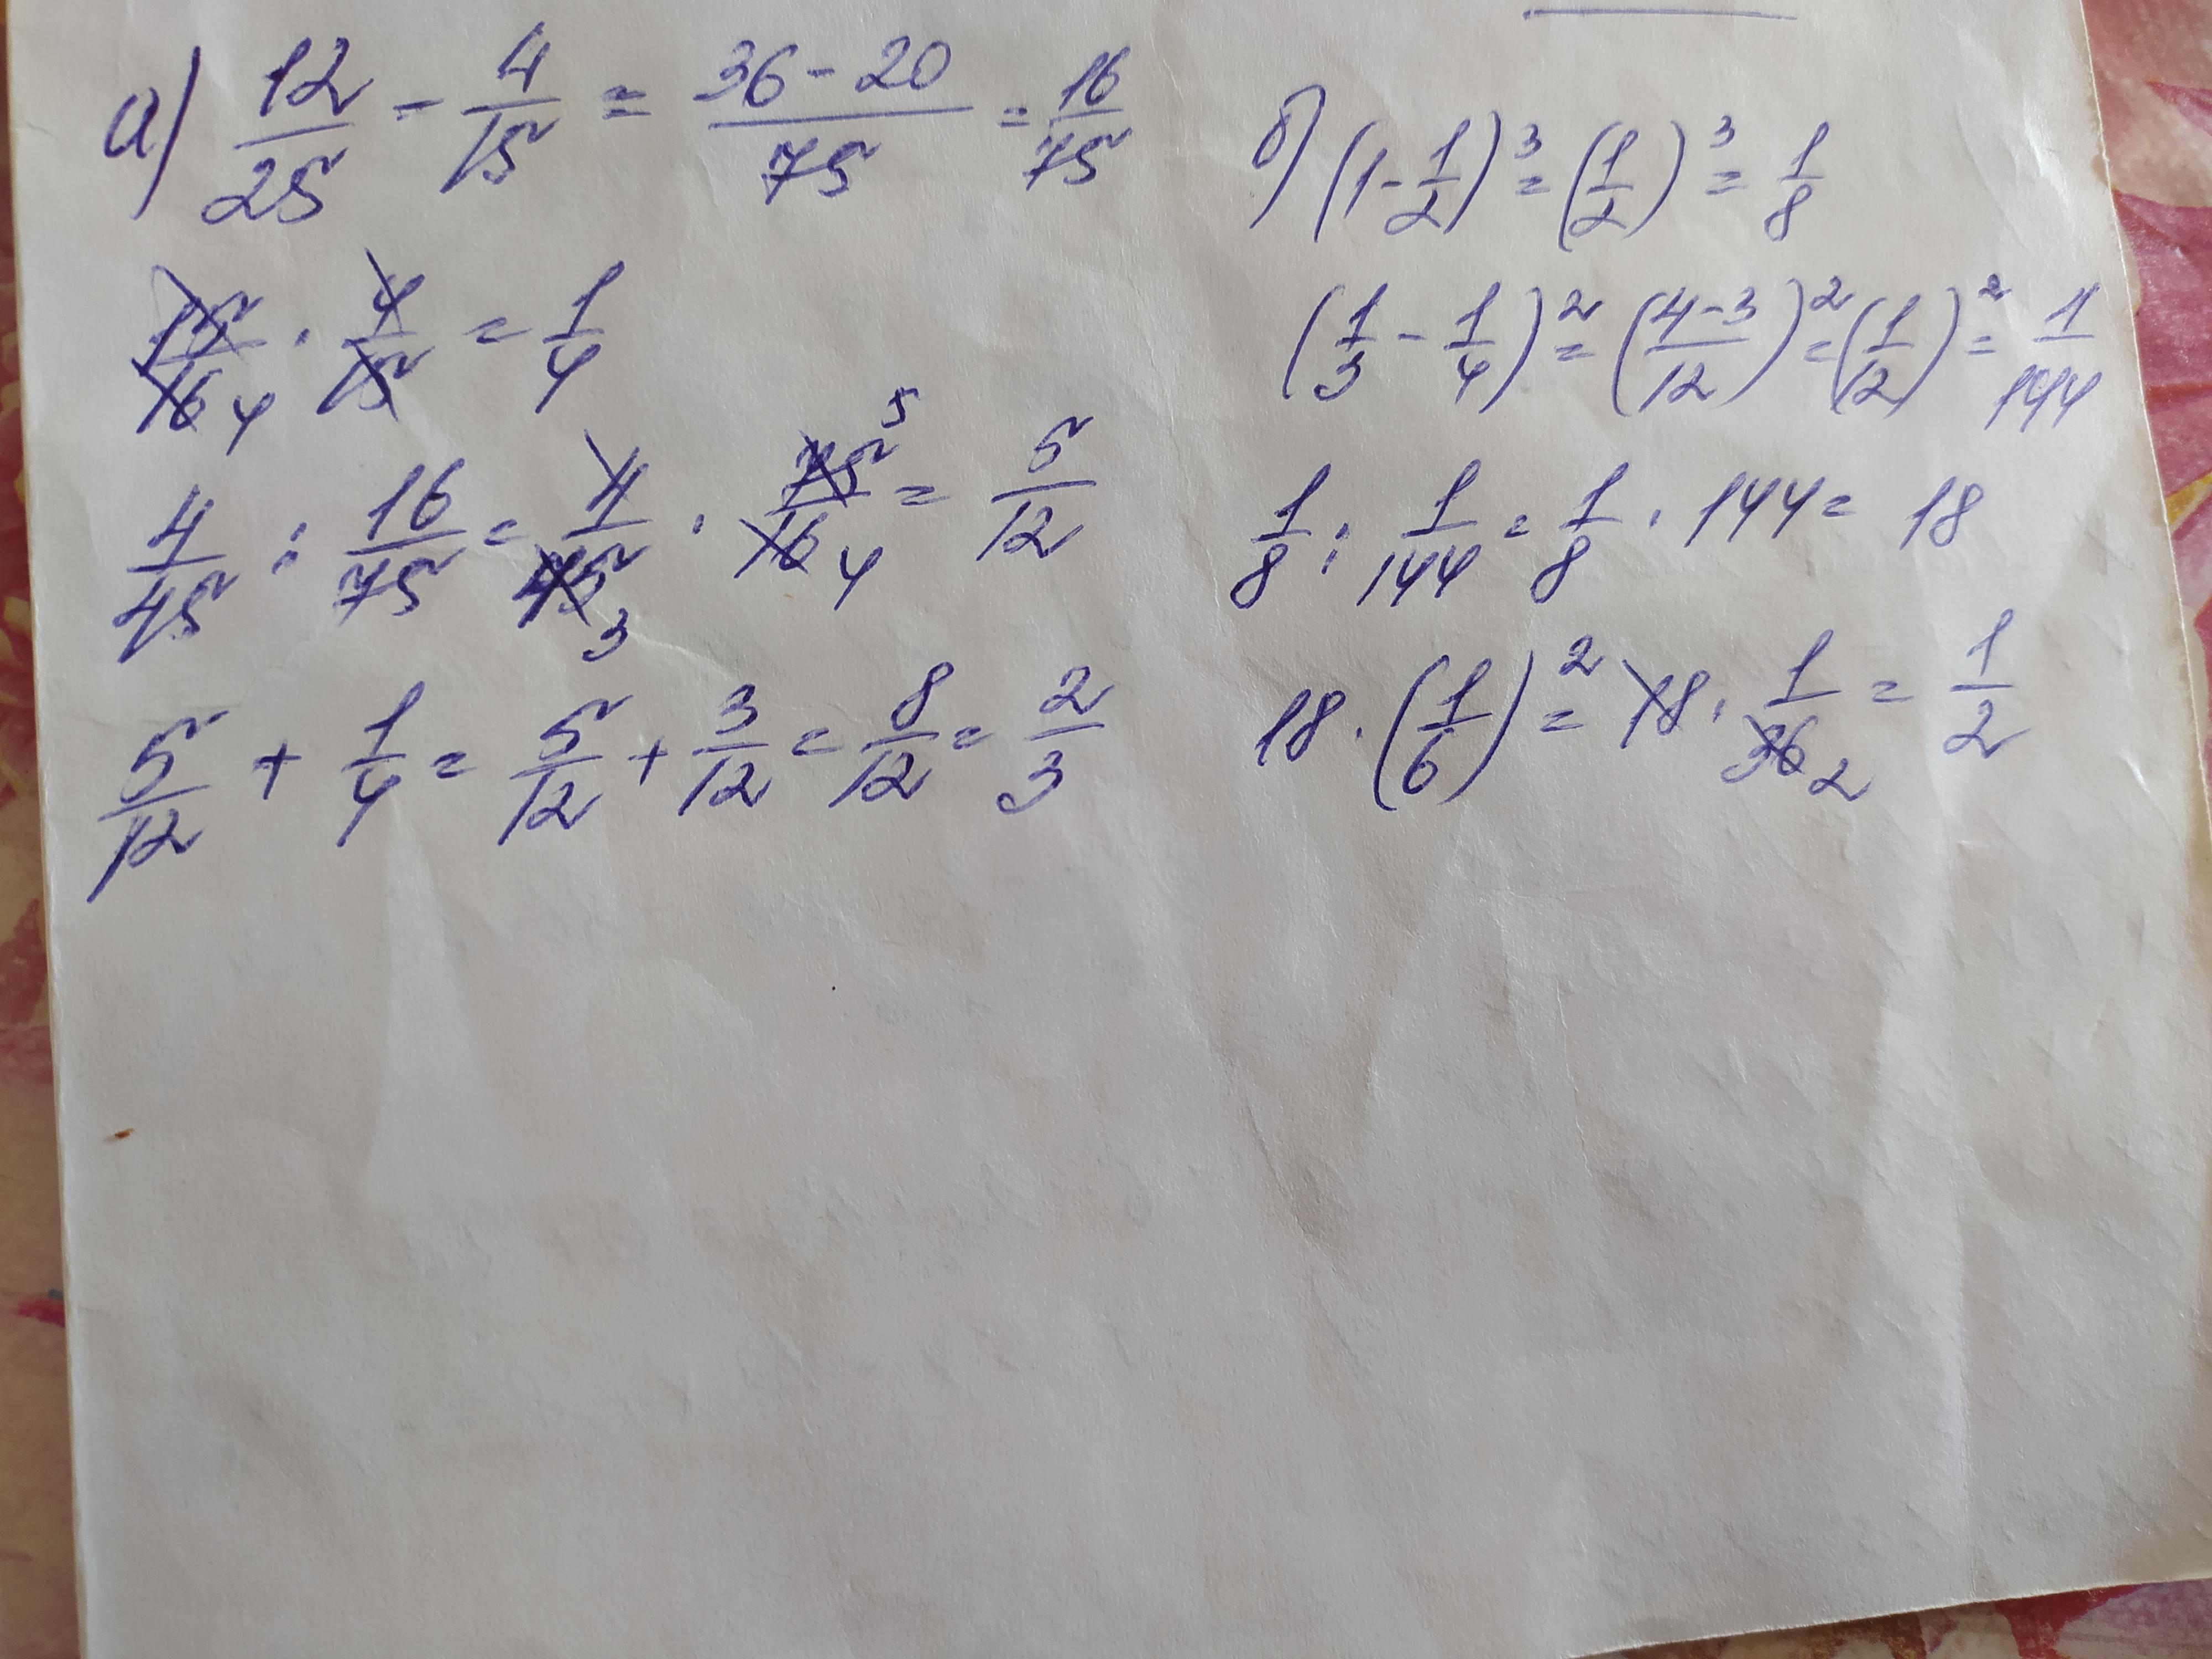 а) 12/25 - 4/15 = (36-20)/75 = 16/75
15/16 4 · 4/15 = 1/4
4/45 : 16/75 = 4/45 3 · 75 5/16 4 = 5/12
5/12 + 1/4 = 5/12 + 3/12 = 8/12 = 2/3
б) (1-1/2)³ = (1/2)³ = 1/8
(1/3 - 1/4)² = ((4-3)/12)² = (1/12)² = 1/144
1/8 : 1/144 = 1/8 · 144 = 18
18 · (1/6)² = 18 · 1/36 2 = 1/2